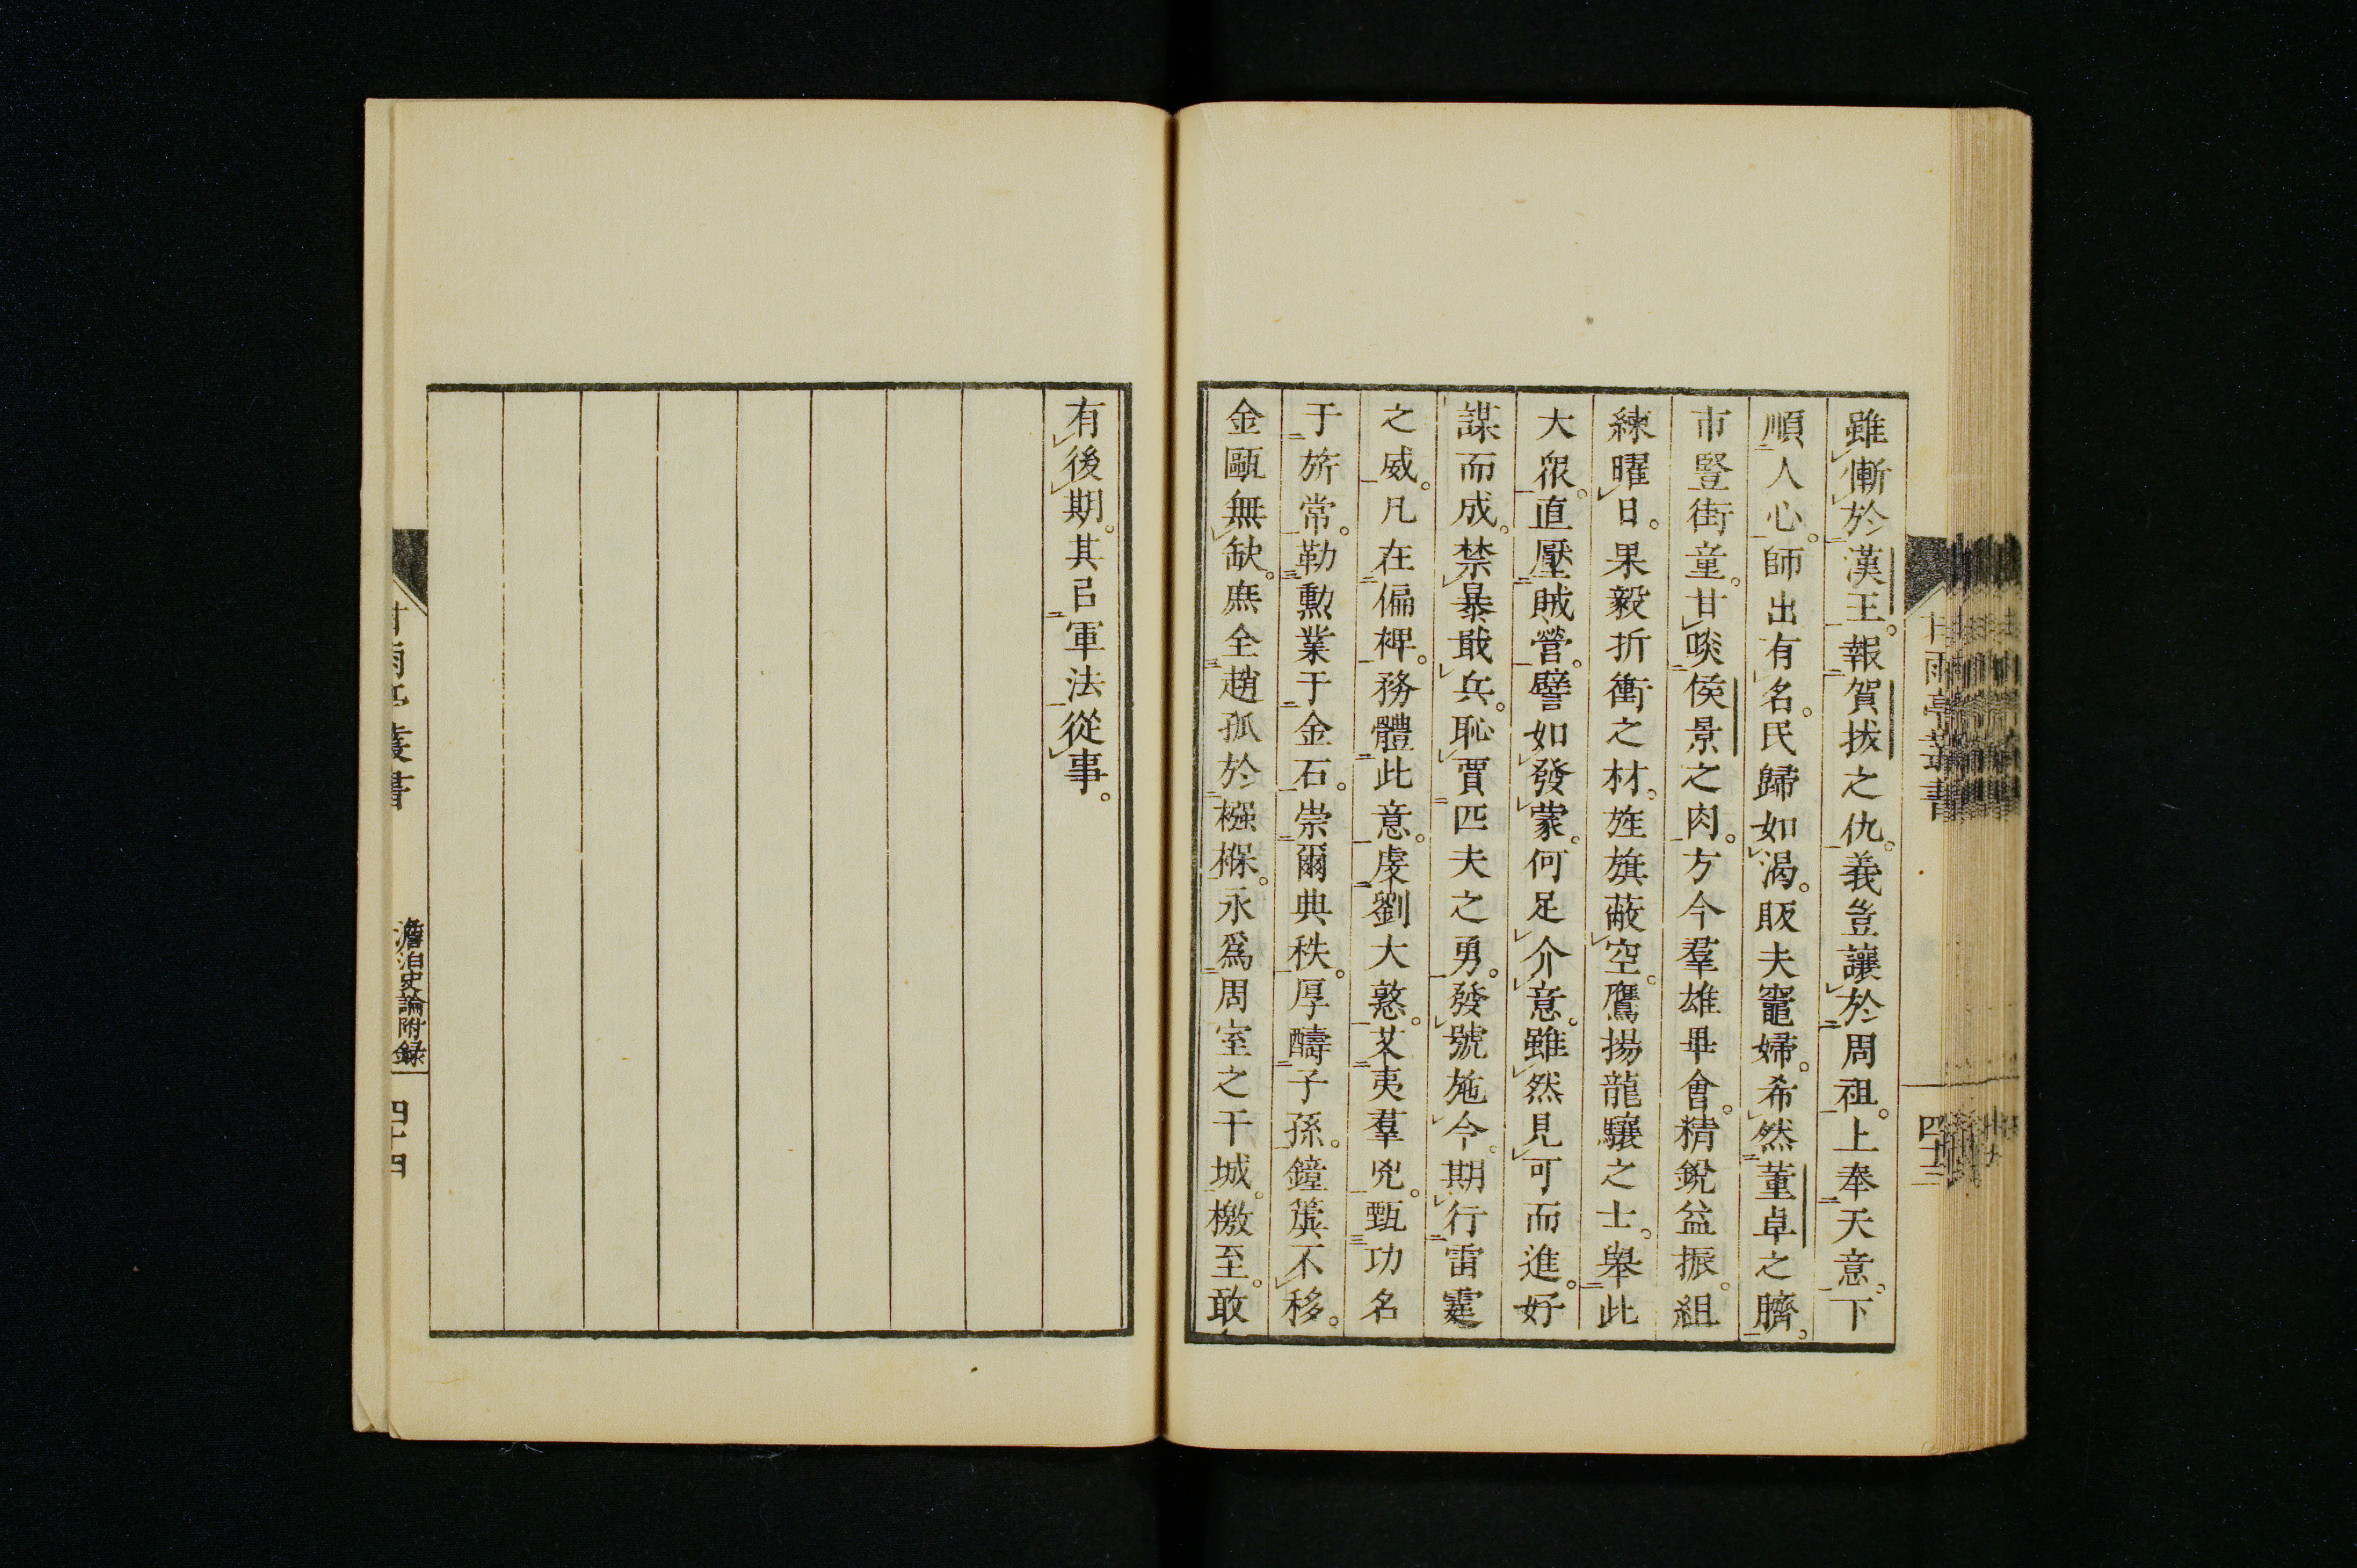 雖慚於漢王。報賀拔之仇。義豈讓於周祖。上奉天意。下
順人心。師出有名。民歸如渴。販夫竈婦。希然董卓之臍。
市豎街童。甘啖侯景之肉。方今羣雄畢會。精銳益振。組
練曜日。果毅折衝之材。旌旗蔽空。鷹揚龍驤之士。舉此
大衆。直壓賊營。譬如發蒙。何足介意。雖然見可而進。好
謀而成。禁暴戢兵。恥賈匹夫之勇。發號施令。期行雷霆
之威。凡在偏裨。務體此意。虔劉大憝。艾夷羣兇。甄功名
于旂常。勒勲業于金石。崇爾典秩。厚疇子孫。鐘簴不移。
金甌無缺。庶全趙孤於襁褓。永爲周室之干城。檄至。敢
有後期。其㠯軍法從事。
甘雨亭叢書
四十三
甘雨亭叢書
澹泊史論附錄
四十四